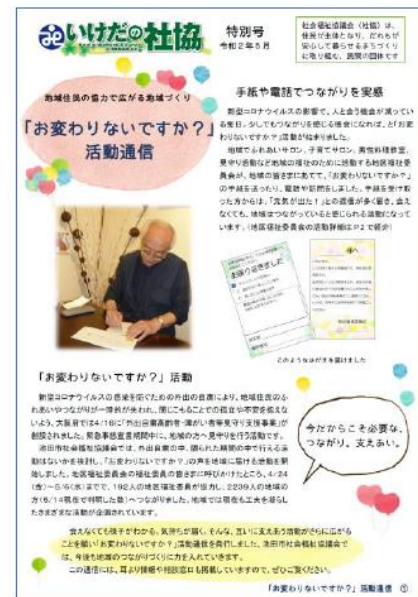 いけだの社協
特別号
令和2年5月
社会福祉協議会(社協)は、
住民が主体となり、だれもが
安心して暮らせるまちづくり
に取り組む、民間の団体です
地域住民の協力で広がる地域づくり
「お変わりないですか?」
活動通信
手紙や電話でつながりを実感
新型コロナウイルスの影響で、人と会う機会が減ってい
る毎日。少しでもつながりを感じる機会になれば、と「お変
わりないですか?」活動が始まりました。
地域でふれあいサロン、子育てサロン、男性料理教室、
見守り活動など地域の福祉のために活動する地区福祉委
員会が、地域の皆さまにあてて、「お変わりないですか?」
の手紙を送ったり、電話や訪問をしました。手紙を受け取
った方からは、「元気が出た!」との返信が多く届き、会え
なくても、地域はつながっていると感じられる活動になって
います。(地区福祉委員会の活動詳細はP2で紹介)
お便り届きました
このようなはがきを届けました
「お変わりないですか?」活動
新型コロナウイルスの感染を防ぐための外出の自粛により、地域住民のふ
れあいやつながりが一時的が失われ、閉じこもることでの孤立や不安を抱えな
いよう、大阪府では4/16に「外出自粛高齢者・障がい者等見守り支援事業」が
創設されました。緊急事態宣言期間中に、地域の方へ見守りを行う活動です。
池田市社会福祉協議会では、外出自粛の中、限られた期間の中で行える活
動はないかを検討し、「お変わりないですか?」の声を地域に届ける活動を開
始しました。地区福祉委員会の福祉委員の皆さまに呼びかけたところ、4/24
(金)~5/6(水)までで、192人の地区福祉委員が協力し、2239人の地域
の方(5/14現在で判明した数)へつながりました。地域では現在も工夫を凝らし
たさまざまな活動が企画されています。
今だからこそ必要な、
つながり。支えあい。
会えなくても様子がわかる。気持ちが届く。そんな、互いに支えあう活動がさらに広がる
ことを願い「お変わりないですか?」活動通信を発行しました。池田市社会福祉協議会で
は、今後も地域のつながりづくりに力を入れていきます。
この通信には、耳より情報や相談窓口も掲載していますので、ぜひご覧ください。
「お変わりないですか?」活動通信 ①